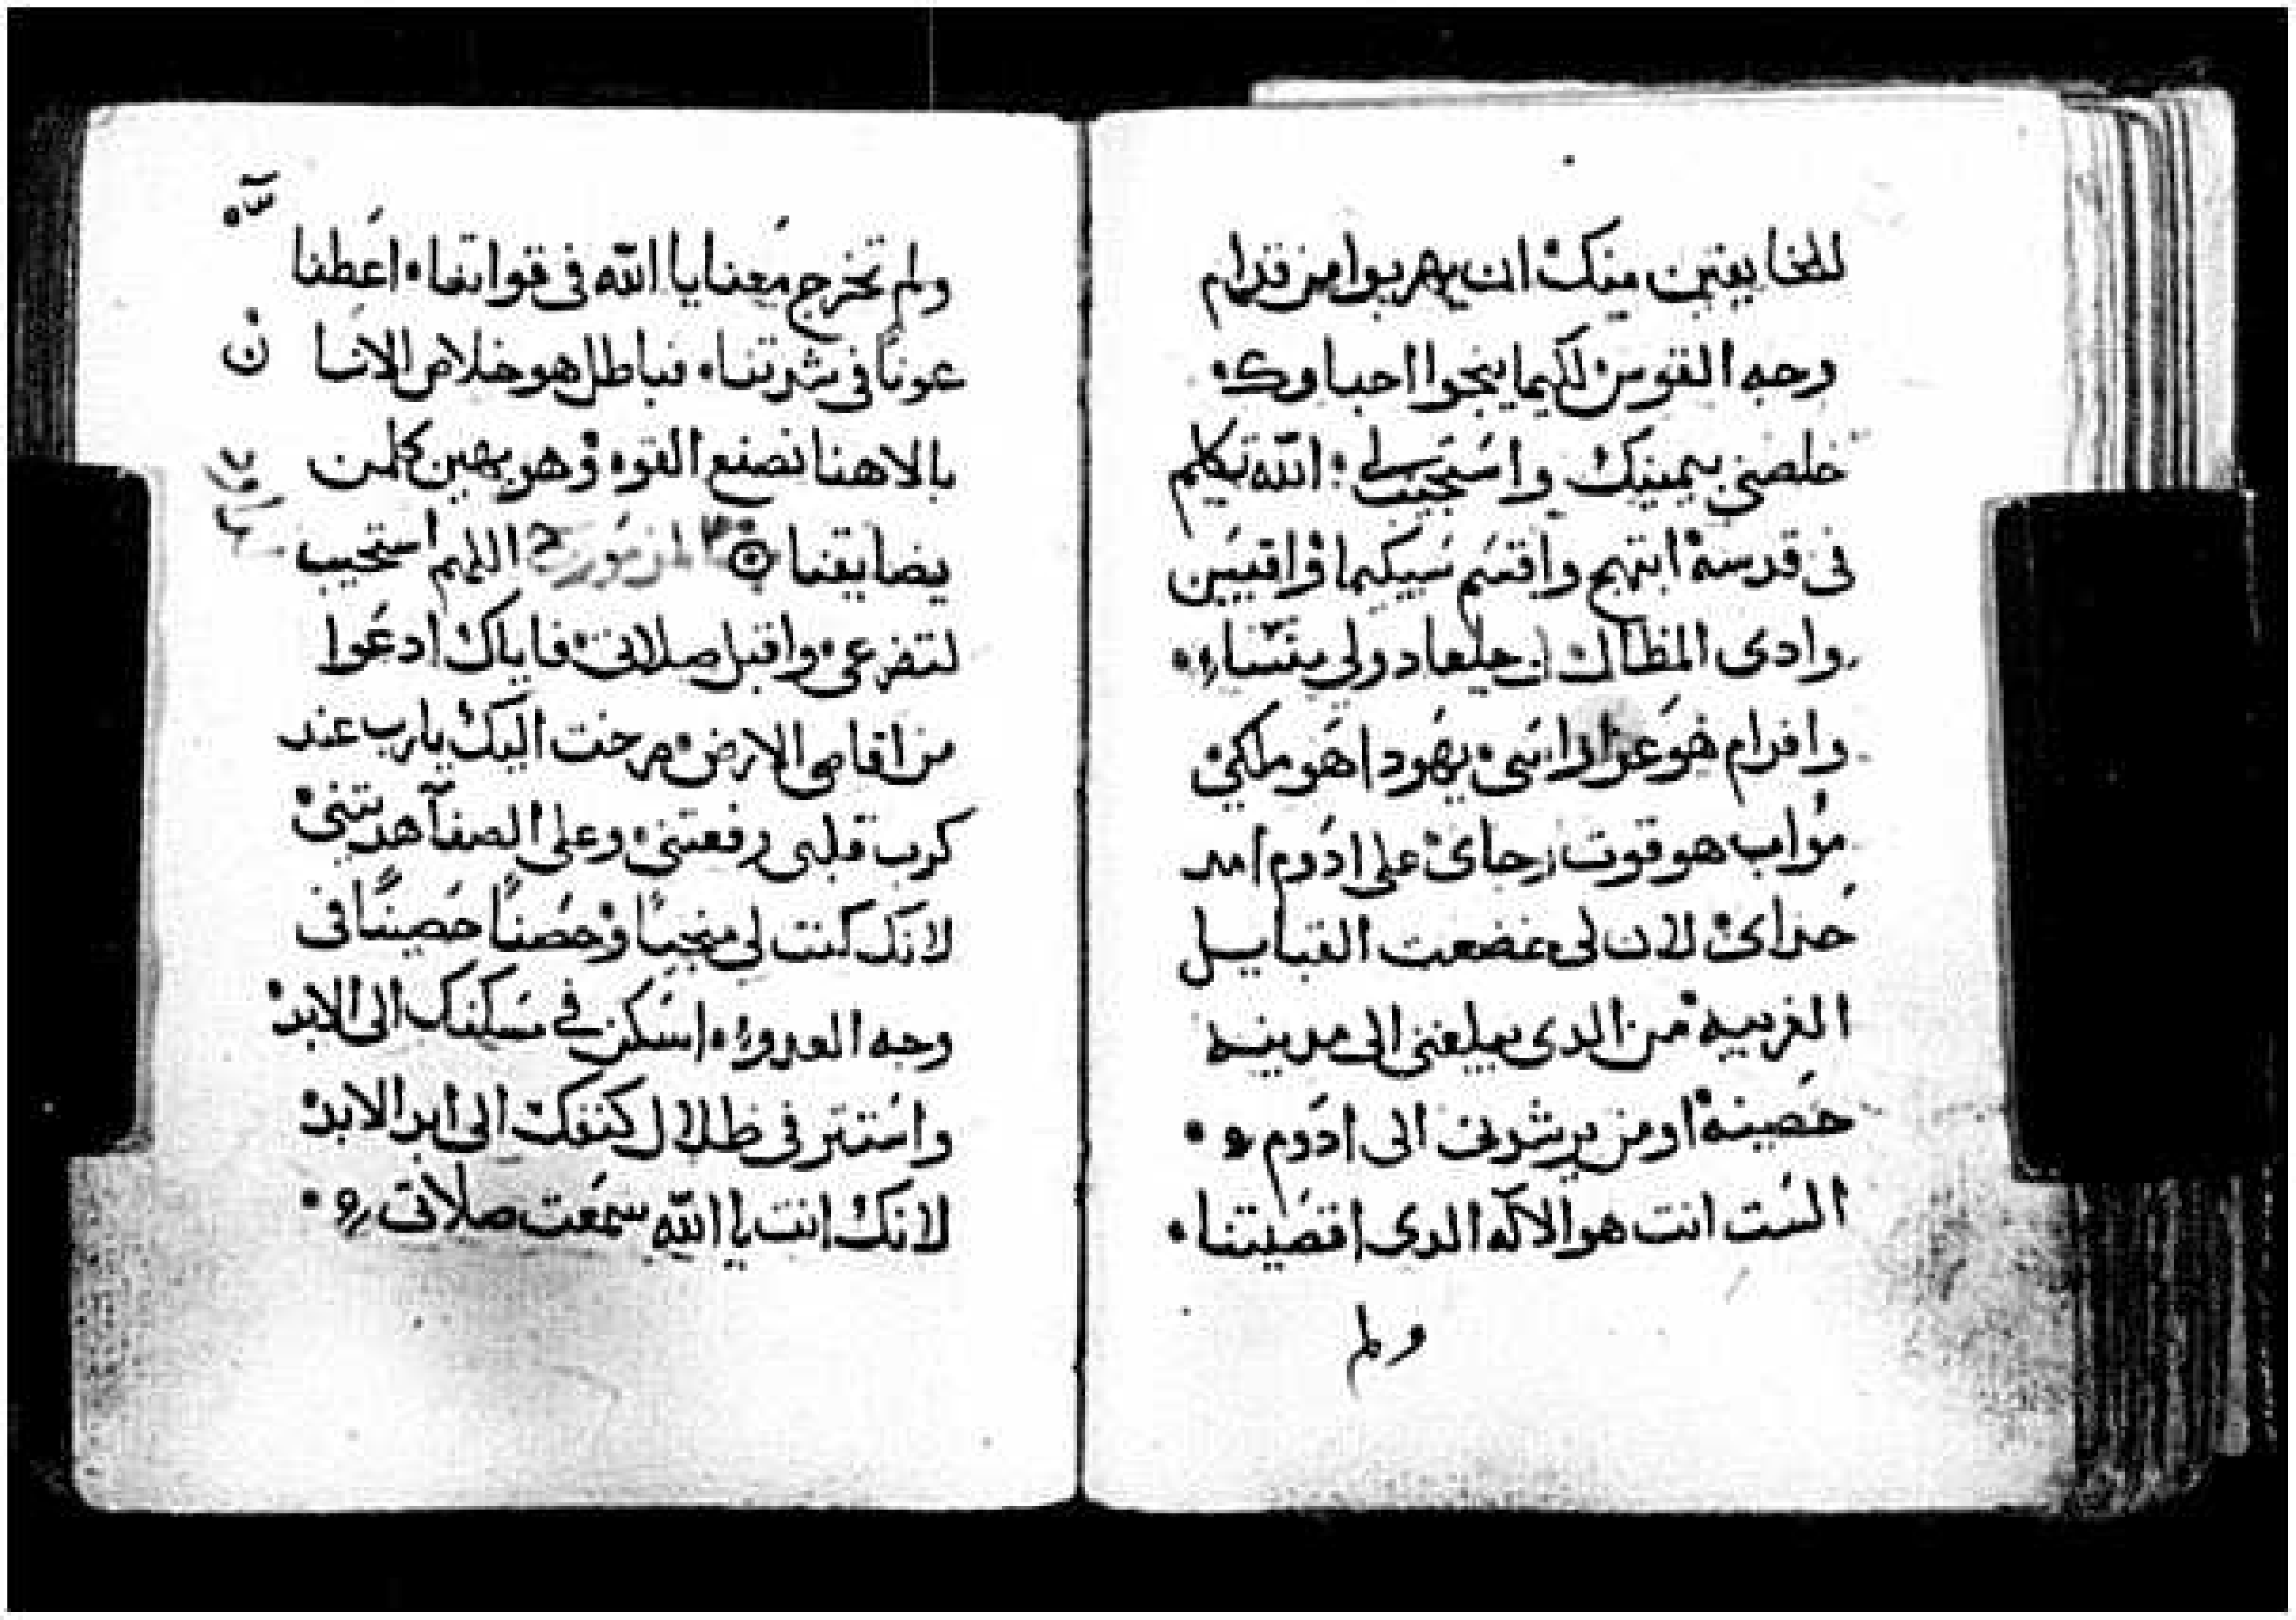 للخايفين منك ان يهربوا من قدام
وجه القوس لكيما ينجوا احباوك
خلصنى بيمينك واستجيب لى الله تكلم
فى قدسه ابتهج واقتسم سيكيما واقيس
وادى المظال لى جلعاد ولى منسا
وافرام هو عز راسى يهودا هو ملكى
مواب هو قوت رجاى على ادوم امد
حذاى لان لى خضعت القبايل
الغريبه من الدى يبلغنى الى مدينه
حصينه او من يرشدنى الى ادوم
الست انت هو الاله الدى اقصيتنا
ولم
ولم تخرج معنا يا الله فى قواتنا اعطنا
عونا فى شدتنا فباطل هو خلاص الانسا ن
بالاهنا نصنع القوه وهو يهين كلمن
يضايقنا المزمور اللهم استجيب
لتضرعى واقبل صلاتى فاياك ادعوا
من اقاصى الارض صرخت اليك يارب عند
كرب قلبى رفعتنى وعلى الصفا هديتنى
لانك كنت لى منجيا وحصنا حصينا فى
وجه العدو اسكن فى مسكنك الى الابد
واستتر فى ظلال كنفك الى ابد الابد
لانك انت يا الله سمعت صلاتى